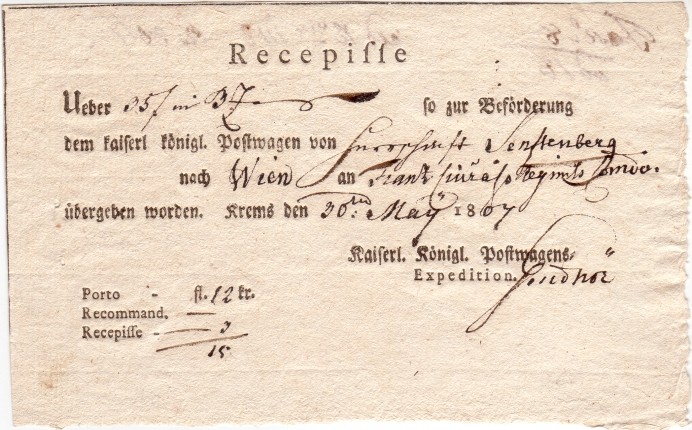 Recepisse
Ueber 35f in so zur Beförderung
dem kaiserl königl. Postwagen von Herrschaft Senftenberg
nach Wien an Franz Regimts
übergeben worden. Krems den 30ten May 1807
Kaiserl. Königl. Postwagens-
Expedition.
Porto - fl. 12 kr.
Recommand. —
Recepisse - — 3
15